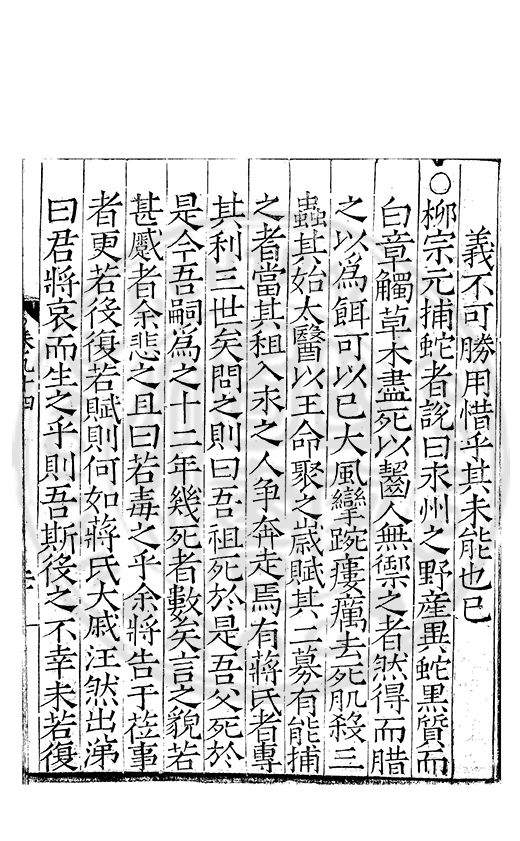 義不可勝用惜乎其未能也已
○柳宗元捕蛇者說曰永州之野產異蛇黑質而
白章觸草木盡死以齧人無禦之者然得而腊
之以為餌可以已大風攣踠瘻癘去死肌殺三
蟲其始太醫以王命聚之歲賦其二募有能捕
之者當其租入永之人爭奔走焉有蔣氏者專
其利三世矣問之則曰吾祖死於是吾父死於
是今吾嗣為之十二年幾死者數矣言之貌若
甚慼者余悲之且曰若毒之乎余將告于莅事
者更若役復若賦則何如蔣氏大戚汪然出涕
曰君將哀而生之乎則吾斯役之不幸未若復
卷九十四